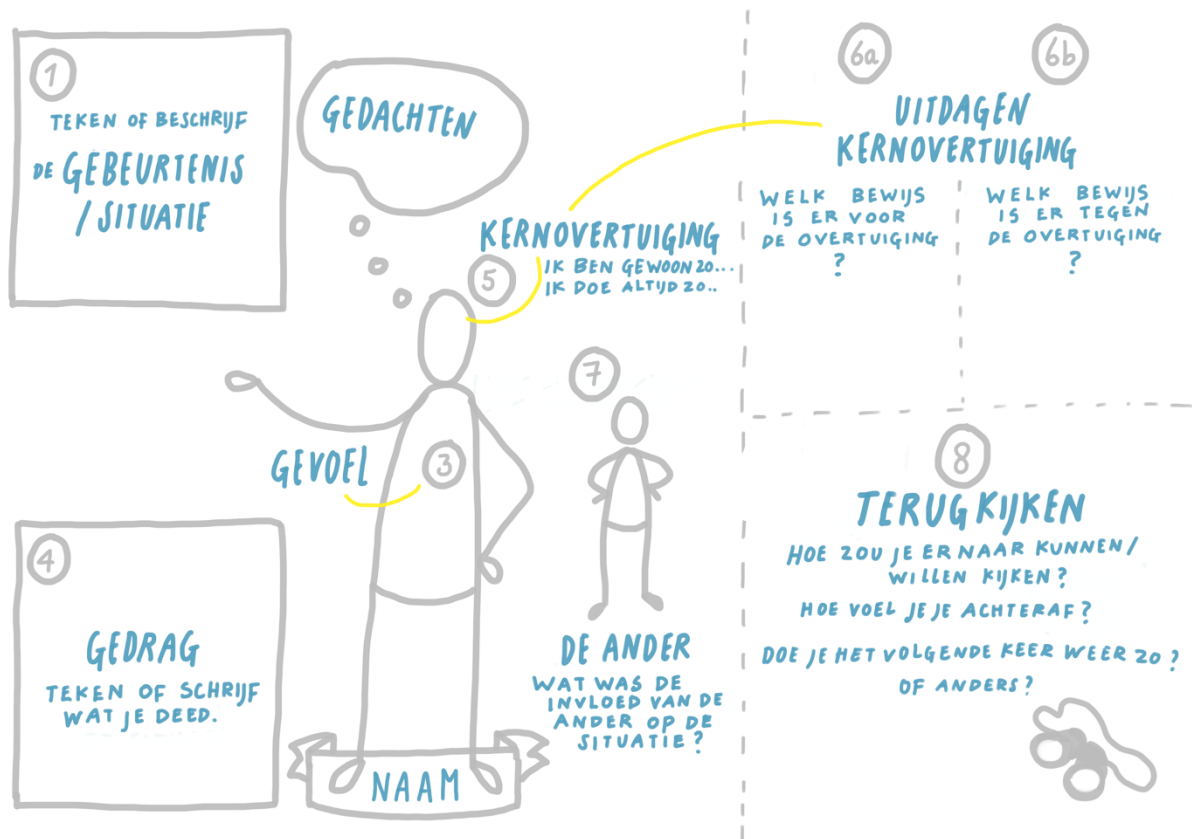 1
TEKEN OF BESCHRIJF
DE GEBEURTENIS
/ SITUATIE
GEDACHTEN
KERNOVERTUIGING
5
IK BEN GEWOON ZO...
IK DOE ALTIJD ZO..
3
GEVOEL
4
GEDRAG
TEKEN OF SCHRIJF
WAT JE DEED.
NAAM
7
DE ANDER
WAT WAS DE
INVLOED VAN DE
ANDER OP DE
SITUATIE?
6a
6b
UITDAGEN
KERNOVERTUIGING
WELK BEWIJS
IS ER VOOR
DE OVERTUIGING
?
WELK BEWIJS
IS ER TEGEN
DE OVERTUIGING
?
8
TERUGKIJKEN
HOE ZOU JE ERNAAR KUNNEN/
WILLEN KIJKEN?
HOE VOEL JE JE ACHTERAF?
DOE JE HET VOLGENDE KEER WEER ZO?
OF ANDERS?